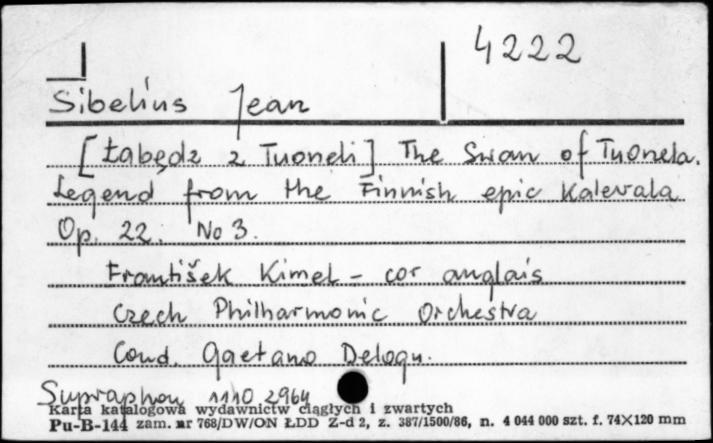 4222
Sibelius Jean
[Łabędź z Tuoneli] The Swan of Tuonela.
Legend from the Finnish epic Kalevala
Op. 22. No 3.
František Kimel - cor anglais
Czech Philharmonic Orchestra
Cond. Gaetano Delogu.
Supraphon 1110 2964
Karta katalogowa wydawnictw ciągłych i zwartych
Pu-B-144 zam. nr 768/DW/ON ŁDD Z-d 2, z. 387/1500/86, n. 4 044 000 szt. f. 74×120 mm